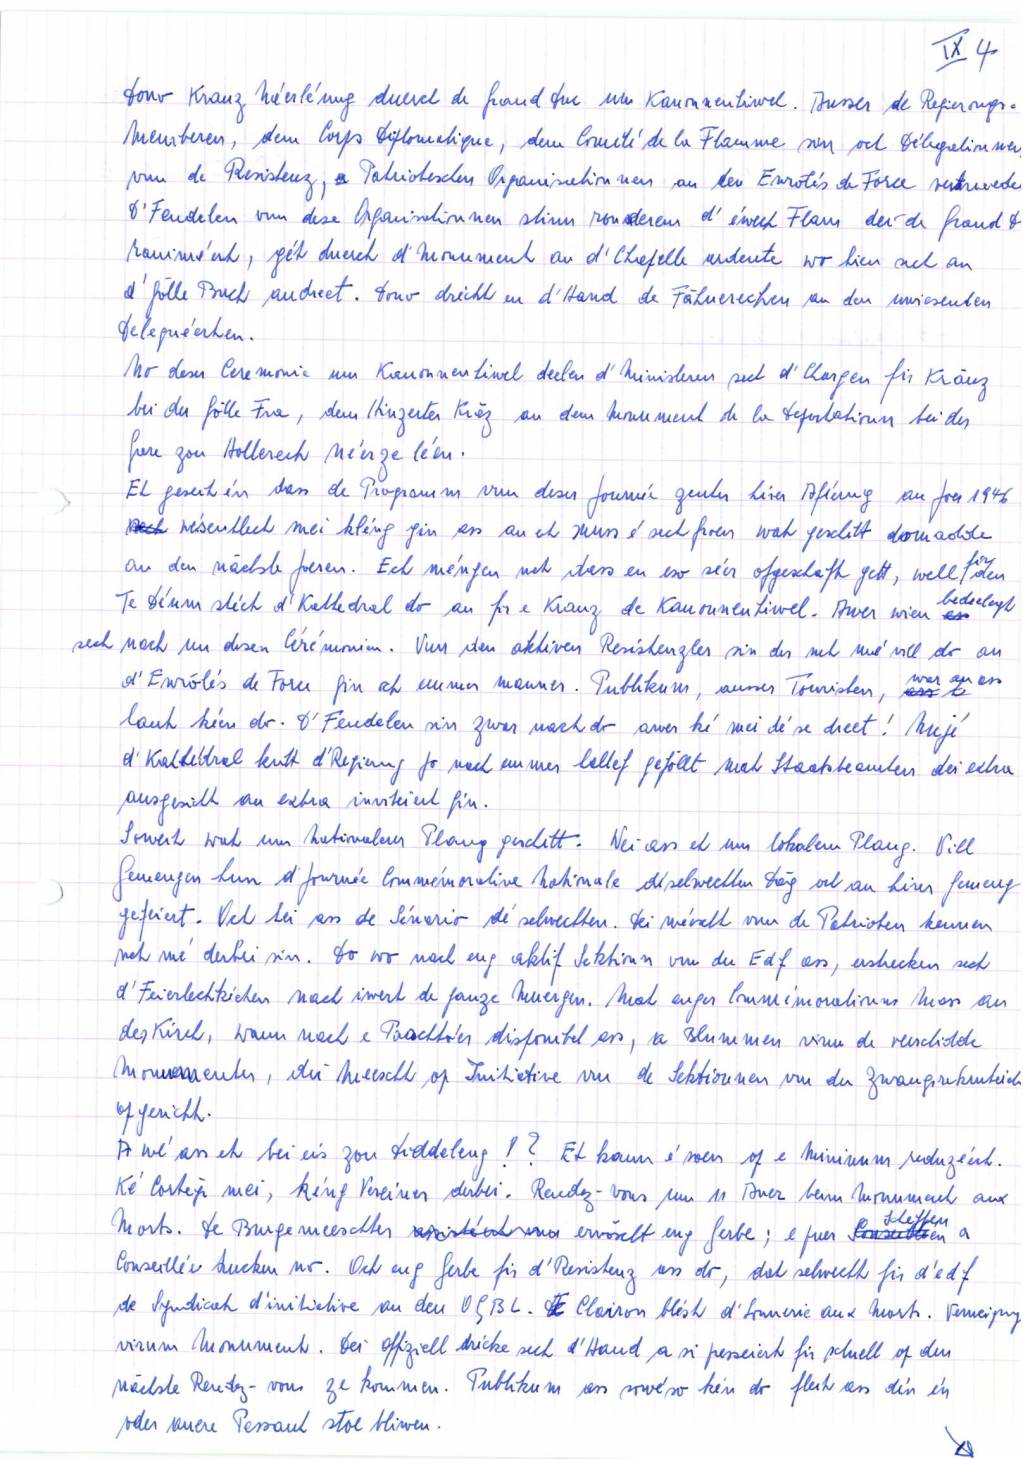 IX 4
dono Kranz néerléung duerch de Grand Duc um Kanounenhiwel. Ausser de Regierungs-
memberen, dem Corps diplomatique, dem Comité de la Flamme sin och Délegatiounen
vun de Resistenz, a Patriotescher Organisatiounen an den Enrolés de Force vertrueden
D'Fendelen vum dese Organisatiounen stinn ronderem d'éwech Flam déi de Grand D
raniméiert, géht duerch d'Monument an d'Chapelle ardente wo hien sech an
d'gölle Buch andreet. Dono dréckt en d'Hand de Fähnerechen an den uwiesenden
Deleguéerten.
No deser Ceremonie um Kanounenhiwel deelen d'Ministeren sech d'Chargen fir Kränz
bei der Gölle Fra, dem Hinzerter Kräz an dem Monument de la Deportatioun bei der
Gare zou Hollerech néerzeléen.
Et geseit én dass de Programm vun deser Journée zenter hirer Aféirung am Joer 1946
wésentlech méi kléng gin ass an et muss é sech froen wat geschitt domadde
an den nächste Joeren. Ech méngen net dass en eso séer ofgeschaft gett, well fir den
Te Déum stéch d'Kathedral do an fir e Kranz de Kanounenhiwel. Awer wien bedeelegt
sech nach un desen Cérémonien. Vun den aktiven Resistenzler sin der net mé vill do an
d'Enrôlés de Force gin ët emmer manner. Publikum, ausser Touristen, war an ass
lauk kéen do. D'Fendelen sin zwar nach do awer ké méi dé se dréet! Meejé
d'Kathédral kritt d'Regirung jo nach emmer gefëllt mat Staatsbeamten déi extra
ausgesicht an extra invitéiert gin.
Soweit wat um Nationalem Plang geschitt. Wéi ass et um lokalem Plang. Vill
Gemengen hun d'Journée Commémorative Nationale déiselwechten Dag och an hirer Gemeng
gefeiert. Och hei ass de Sénario dé selwechten. Déi méescht vun de Patrioten kennen
net mé derbei sin. Do wo nach eng aktif Sektioun vun der Edf ass, erstrecken sech
d'Feierlechkeeten nach iwert de ganze Muergen. Mat enger Commémoratiouns Mass an
der Kirch, wann nach e Paschtoer disponibel ass, a Blummen virun de verschidde
Monumenter, déi meescht op Initiative vun de Sektiounen vun der Zwangsrekrutéiert
opgericht.
A wé ass et bei eis zou Diddeleng!? Et kann é soen op e Minimum reduzéiert.
Ké Cortège méi, kéng Veräiner derbei. Rendez-vous um 11 Auer beim Monument aux
Morts. De Burgermeeschter eng Gerbe; e puer Scheffen a
Conseillér hucken no. Och eng Gerbe fir d'Resistenz ass do, dat selwecht fir d'edf
de Syndicat d'initiative an den OGBL. E Clairon blést d'Sonnerie aux Morts. Verneigung
virum Monument. Déi offiziell drécke sech d'Hand a si presseiert fir schnell op den
nächste Rendez-vous ze kommen. Publikum ass sowéso kén do fleit ass din én
oder anere Passant stoe bliwen.